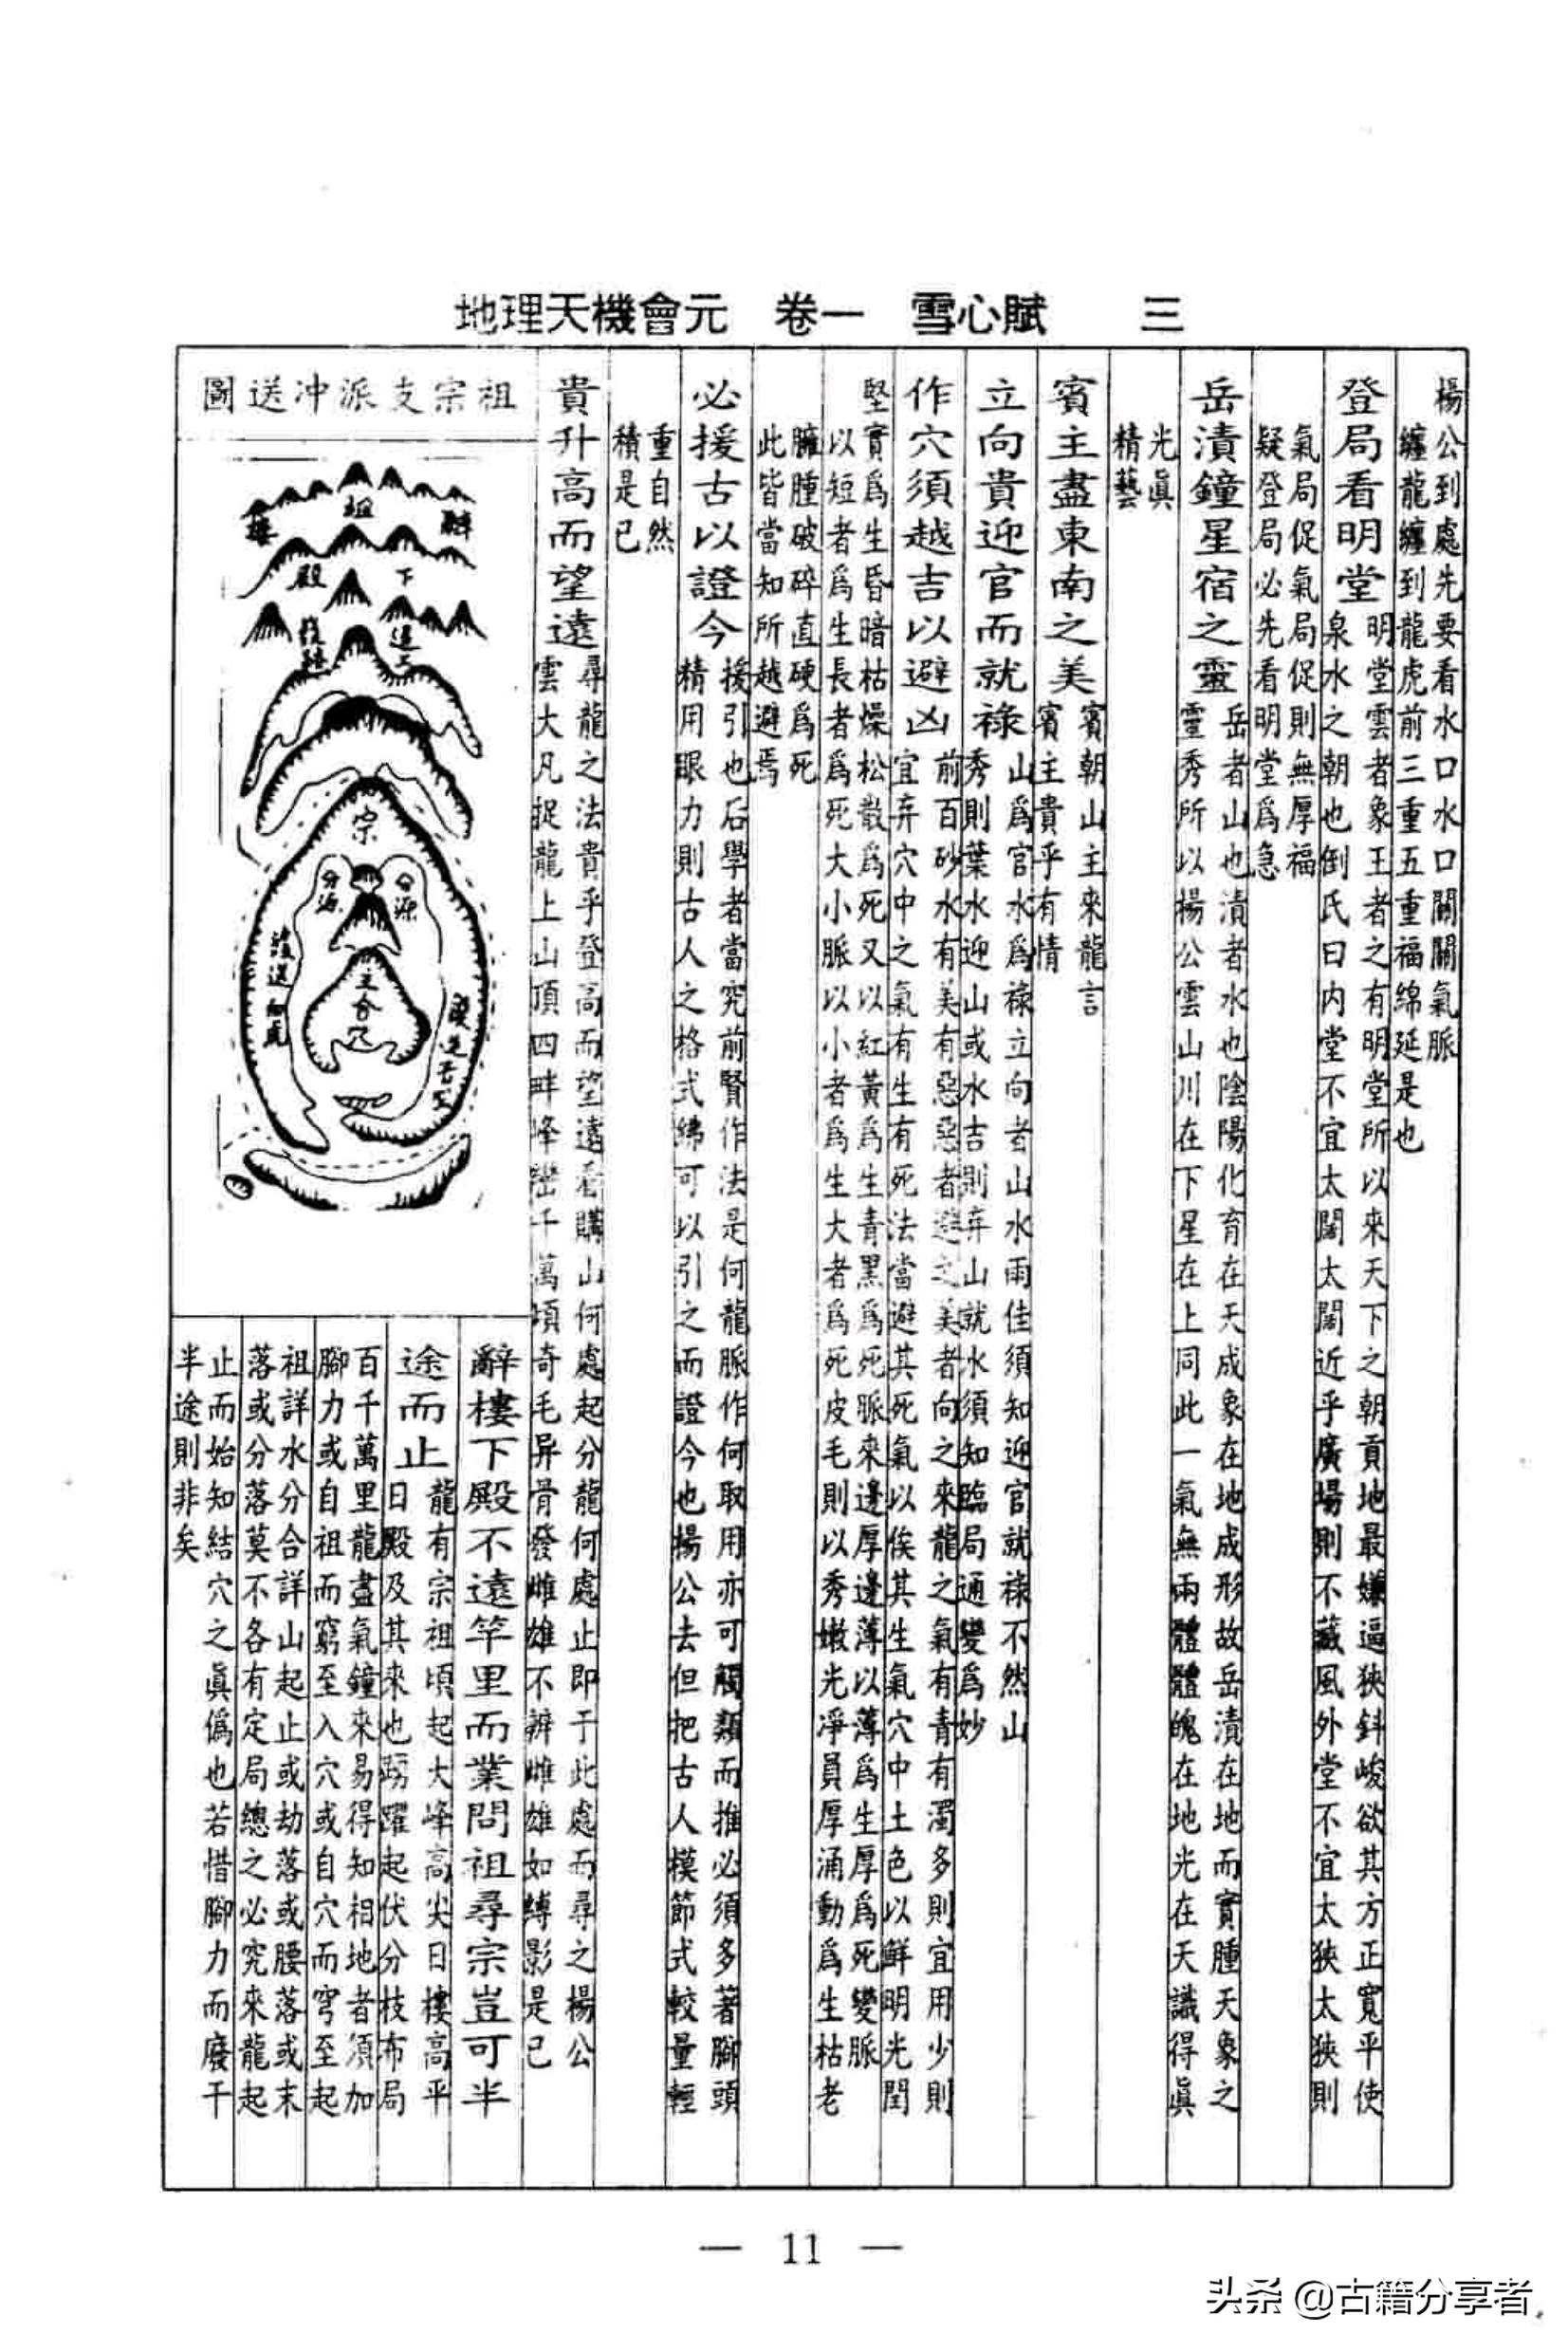 地理天機會元　卷一　雪心賦　三
楊公到處先要看水口水口關關氣脈
纏龍纏到龍虎前三重五重福綿延是也
登局看明堂
明堂雲者象王者之有明堂所以來天下之朝貢地最嫌逼狹斜峻欲其方正寬平使
泉水之朝也倒氏曰内堂不宜太闊太闊近乎廣場則不藏風外堂不宜太狹太狹則
氣局促氣局促則無厚福
疑登局必先看明堂爲急
岳瀆鐘星宿之靈
岳者山也瀆者水也陰陽化育在天成象在地成形故岳瀆在地而實腫天象之
靈秀所以楊公雲山川在下星在上同此一氣無兩體體魄在地光在天識得眞
光眞
精藝
賓主盡東南之美
賓朝山主來龍言
賓主貴乎有情
立向貴迎官而就祿
山爲官水爲祿立向者山水雨佳須知迎官就祿不然山
秀則葉水迎山或水吉則弃山就水須知臨局通變爲妙
作穴須越吉以避凶
前百砂水有美有惡惡者避之美者向之來龍之氣有青有濁多則宜用少則
宜弃穴中之氣有生有死法當避其死氣以俟其生氣穴中土色以鮮明光閏
堅實爲生昏暗枯燥松散爲死又以紅黃爲生青黑爲死脈來邊厚邊薄以薄爲生厚爲死變脈
以短者爲生長者爲死大小脈以小者爲生大者爲死皮毛則以秀嫩光淨員厚涌動爲生枯老
臃腫破碎直硬爲死
此皆當知所越避焉
必援古以證今
援引也后學者當究前賢作法是何龍脈作何取用亦可觸類而推必須多著腳頭
精用眼力則古人之格式綿可以引之而證今也楊公去但把古人模節式較量輕
重自然
積是已
貴升高而望遠
尋龍之法貴乎登高而望遠看購山何處起分龍何處止即于此處而尋之楊公
雲大凡捉龍上山頂四畔峰巒千萬項奇毛异骨發雌雄不辨雌雄如縛影是已
祖宗支派冲送圖
祖
辭
樓
下
殿
宗
分源
分源
主合穴
辭樓下殿不遠竿里而業問祖尋宗豈可半
途而止
龍有宗祖頃起大峰高尖日樓高平
日殿及其來也踴躍起伏分枝布局
百千萬里龍盡氣鐘來易得知相地者須加
腳力或自祖而窮至入穴或自穴而穹至起
祖詳水分合詳山起止或劫落或腰落或末
落或分落莫不各有定局總之必究來龍起
止而始知結穴之眞僞也若惜腳力而廢干
半途則非矣
— 11 —
头条 @古籍分享者